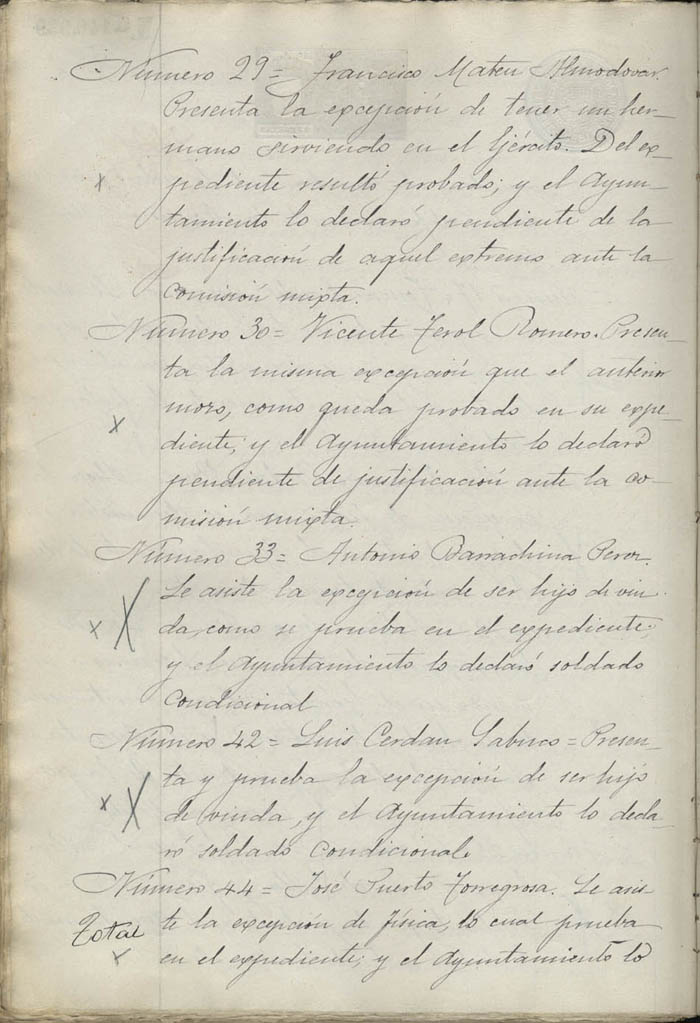 Número 29= Francisco Mateu Almodovar.
Presenta la excepción de tener un her-
mano sirviendo en el Ejército. Del ex-
pediente resultó probado; y el Ayun-
tamiento lo declaró pendiente de la
justificación de aquel extremo ante la
Comisión mixta.
Número 30= Vicente Ferol Romero. Presen-
ta la misma excepción que el anterior
mozo, como queda probado en su expe-
diente; y el Ayuntamiento lo declaró
pendiente de justificación ante la co-
misión mixta.
Número 33= Antonio Barrachina Perez.
Le asiste la excepción de ser hijo de viu-
da, como se prueba en el expediente;
y el Ayuntamiento lo declaró soldado
condicional
Número 42= Luis Cerdan Sabuco= Presen-
ta y prueba la excepción de ser hijo
de viuda, y el Ayuntamiento lo decla-
ró soldado condicional.
Número 44= José Puerto Torregrosa. Le asis-
Total
te la excepción de física, lo cual prueba
en el expediente; y el Ayuntamiento lo